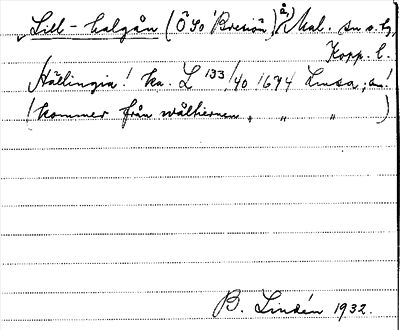 Lill-halgån (Ö So Bresiön) å, Mal. sn s. h,
Kopp. l.
Hällingia! ka. L 133/40 1694 Lmsa, a.!
(kommer från wålkiernen, " " )
B. Lindén 1932.